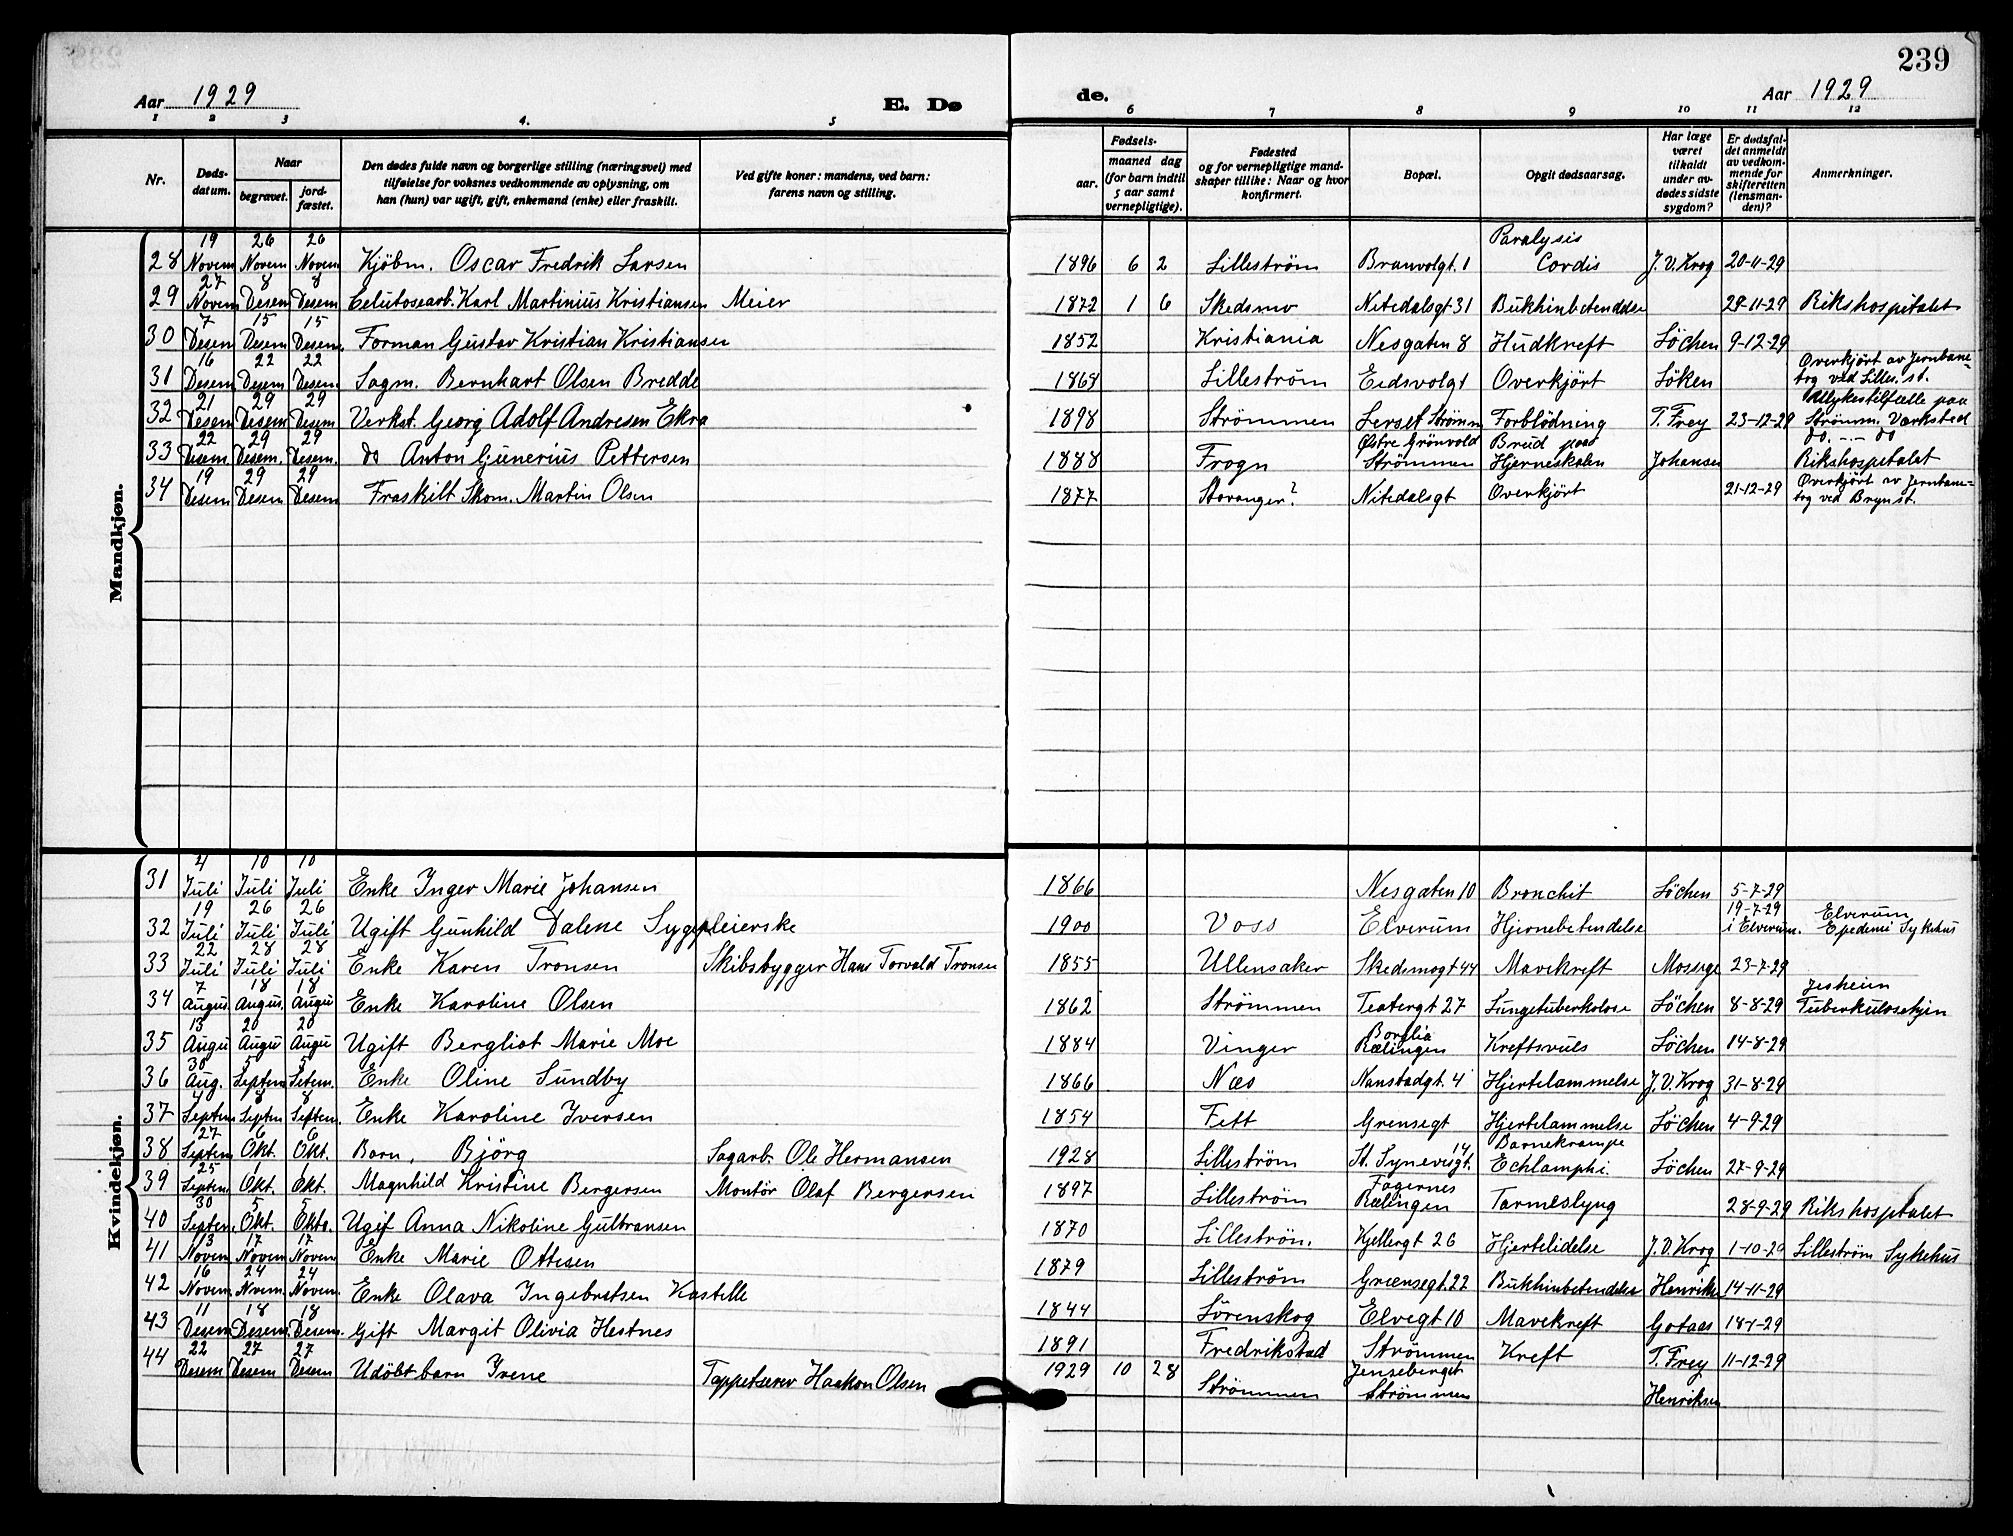 239
Aar 1929 E. Dø
de. Aar 1929
1 2 3 4. 5
6 7 8 9 10 11 12
Nr.
Døds-
datum.
Naar
begravet.
jord-
fæstet.
Den dødes fulde navn og borgerlige stilling (næringsvei) med
tilføielse for voksnes vedkommende av oplysning, om
han (hun) var ugift, gift, enkemand (enke) eller fraskilt.
Ved gifte koner: mandens, ved barn:
farens navn og stilling.
Fødsels-
aar.
maaned dag
(for barn indtil
5 aar samt
vernepligtige).
Fødested
og for vernepligtige mand-
skaper tillike: Naar og hvor
konfirmert.
Bopæl.
Opgit dødsaarsag.
Har læge
været
tilkaldt
under av-
dødes sidste
sygdom?
Er dødsfal-
det anmeldt
av vedkom-
mende for
skifteretten
(lensman-
den)?
Anmerkninger.
Mandkjøn.
28 19 Novem 26 Novem 26 Novem Kjöbm. Oscar Fredrik Larsen 1896 6 2 Lilleström Branvolgt. 1 Paralysis Cordis J. V. Krog 20-11-29
29 27 Novem 8 Desem 8 Desem Celulosearb. Karl Martinius Kristiansen Meier 1872 1 6 Skedsmo Nitedalsgt 31 Bukhinbetendelse 29-11-29 Rikshospitalet
30 7 Desem 15 Desem 15 Desem. Forman Gustav Kristian Kristiansen 1852 Kristiania Nesgaten 8 Hudkreft Löchen 9-12-29
31 16 Desem 22 Desem 22 Desem. Sagm. Bernhart Olsen Bredde 1868 Lilleström Eidsvolgt Overkjört Löken Overkjört av Jernbane-
tog ved Lilles. st.
32 21 Desem 29 Desem 29 Desem Verkst. Georg Adolf Andresen Ekra 1898 Strömmen Lerset Strömm Forblödning T. Frey 23-12-29 Ulykestilfælle paa
Strömm. Værksted
33 22 Desem. 29 Desem. 29 Desem. do Anton Gunerius Pettersen 1888 Frogn Østre Grönvold Strömmen Brud paa Hjerneskalen Johansen do. - - do
Rikshospitalet
34 19 Desem 29 Desem 29 Desem Fraskilt Skom. Martin Olsen 1877 Stavanger? Nitedalsgt Overkjört 21-12-29 Overkjört av Jernbane-
tog ved Bryn st.
Kvindekjøn.
31 4 Juli 10 Juli 10 Juli Enke Inger Marie Johansen 1866 Nesgaten 10 Bronchit Löchen 5-7-29
32 19 Juli 26 Juli 26 Juli Ugift Gunhild Dalene Sygepleierske 1900 Voss Elverum Hjernebetendelse 19-7-29 i Elverum. Elverum
Epedemi Sykehus
33 22 Juli 28 Juli 28 Juli Enke Karen Tronsen Skibsbygger Hans Torvald Tronsen 1855 Ullensaker Skedsmogt 44 Mavekreft Mosege 23-7-29
34 7 Augus. 18 Augus. 18 Augus Enke Karoline Olsen 1862 Strömmen Teatergt 27 Lungetuberkolose Löchen 8-8-29 Jesheim
Tuberkulosehjem
35 13 Augu 20 Augu 20 Augu Ugift Bergliot Marie Moe 1884 Vinger Borglia Rælingen Kreftsvuls Löchen 14-8-29
36 30 Aug. 5 Septem 5 Setem. Enke Oline Sundby 1866 Næs Nanstadgt. 4 Hjertelammelse J. V. Krog 31-8-29
37 4 Septem 8 Septem 8 Septem. Enke Karoline Iversen 1854 Fett Grensegt Hjertelammelse Löchen 4-9-29
38 27 Septem 6 Okt. 6 Okt. Barn, Björg Sagarb. Ole Hermansen 1928 Lilleström St. Synevegt. 14 Barnekrampe Echlamphi. Löchen 27-9-29
39 25 Septem 1 Okt. 1 Okt. Magnhild Kristine Bergersen Montör Olaf Bergersen 1897 Lilleström Fagernes Rælingen Tarmeslyng 28-9-29 Rikshospitalet
40 30 Septem. 5 Okt. 5 Okto. Ugif Anna Nikoline Gulbransen 1870 Lilleström. Kjellergt 26 Hjertelidelse J. V. Krog 1-10-29 Lilleström Sykehus
41 13 Novem 17 Novem 17 Novem Enke Marie Ottesen 1879 Lilleström Grænsegt. 22 Bukhinbetendelse Henriks 14-11-29
42 16 Novem 24 Nvem. 24 Novem. Enke Olava Ingebretsen Kastelle 1844 Lörenskog Elvegt 10 Mavekreft Gotaas 18-1-29
43 11 Desem 18 Desem. 18 Desem. Gift Margit Olivia Hestnes 1891 Fredrikstad Strömmen Kreft T. Frey 11-12-29
44 22 Desem 27 Desem 27 Desem Udöbt barn Irene Tappetserer Haakon Olsen 1929 10 28 Strömmen Jenseberget Strömmen Henriksen